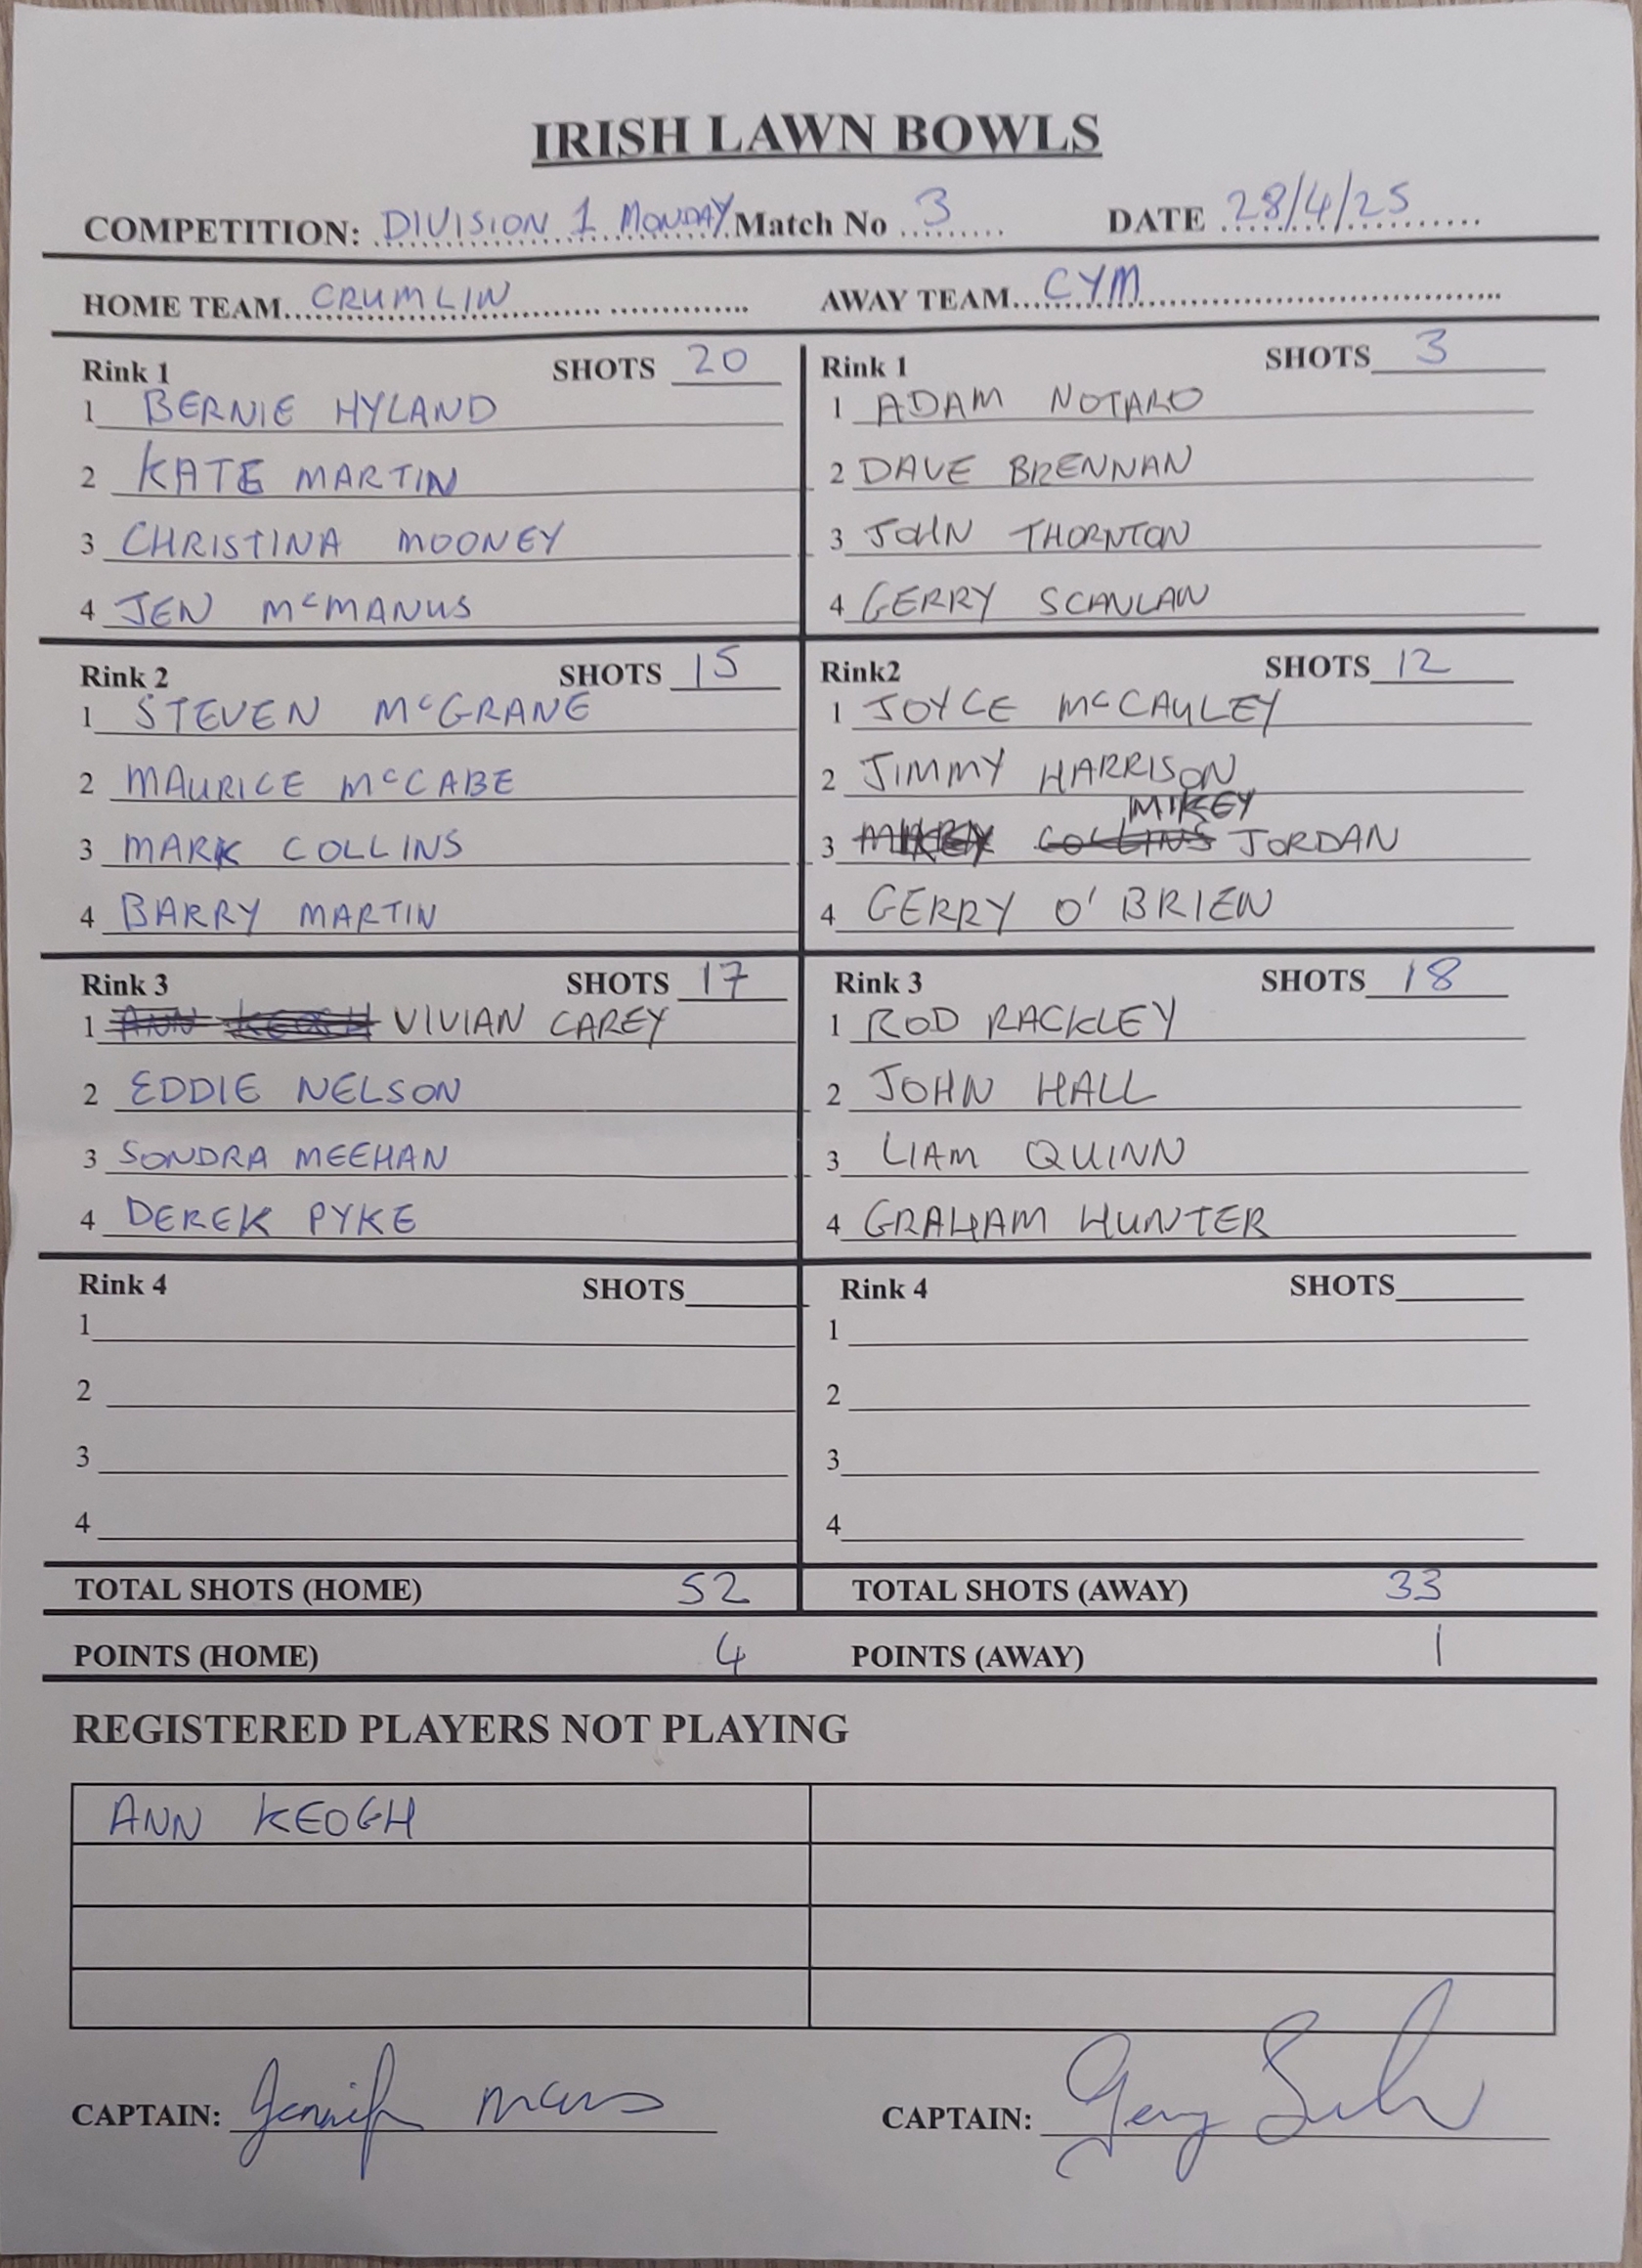 IRISH LAWN BOWLS
COMPETITION: DIVISION 1 MONDAY Match No 3 DATE 28/4/25
HOME TEAM CRUMLIN AWAY TEAM CYM
Rink 1 SHOTS 20
1 BERNIE HYLAND
2 KATE MARTIN
3 CHRISTINA MOONEY
4 JEN McMANUS
Rink 1 SHOTS 3
1 ADAM NOTARO
2 DAVE BRENNAN
3 JOHN THORNTON
4 GERRY SCANLAN
Rink 2 SHOTS 15
1 STEVEN McGRANE
2 MAURICE McCABE
3 MARK COLLINS
4 BARRY MARTIN
Rink2 SHOTS 12
1 JOYCE McCAULEY
2 JIMMY HARRISON
MIKEY
3 MIKEY COLLINS JORDAN
4 GERRY O'BRIEN
Rink 3 SHOTS 17
1 ANN KEOGH VIVIAN CAREY
2 EDDIE NELSON
3 SONDRA MEEHAN
4 DEREK PYKE
Rink 3 SHOTS 18
1 ROD RACKLEY
2 JOHN HALL
3 LIAM QUINN
4 GRAHAM HUNTER
Rink 4 SHOTS
1
2
3
4
Rink 4 SHOTS
1
2
3
4
TOTAL SHOTS (HOME) 52 TOTAL SHOTS (AWAY) 33
POINTS (HOME) 4 POINTS (AWAY) 1
REGISTERED PLAYERS NOT PLAYING
ANN KEOGH
CAPTAIN: CAPTAIN: